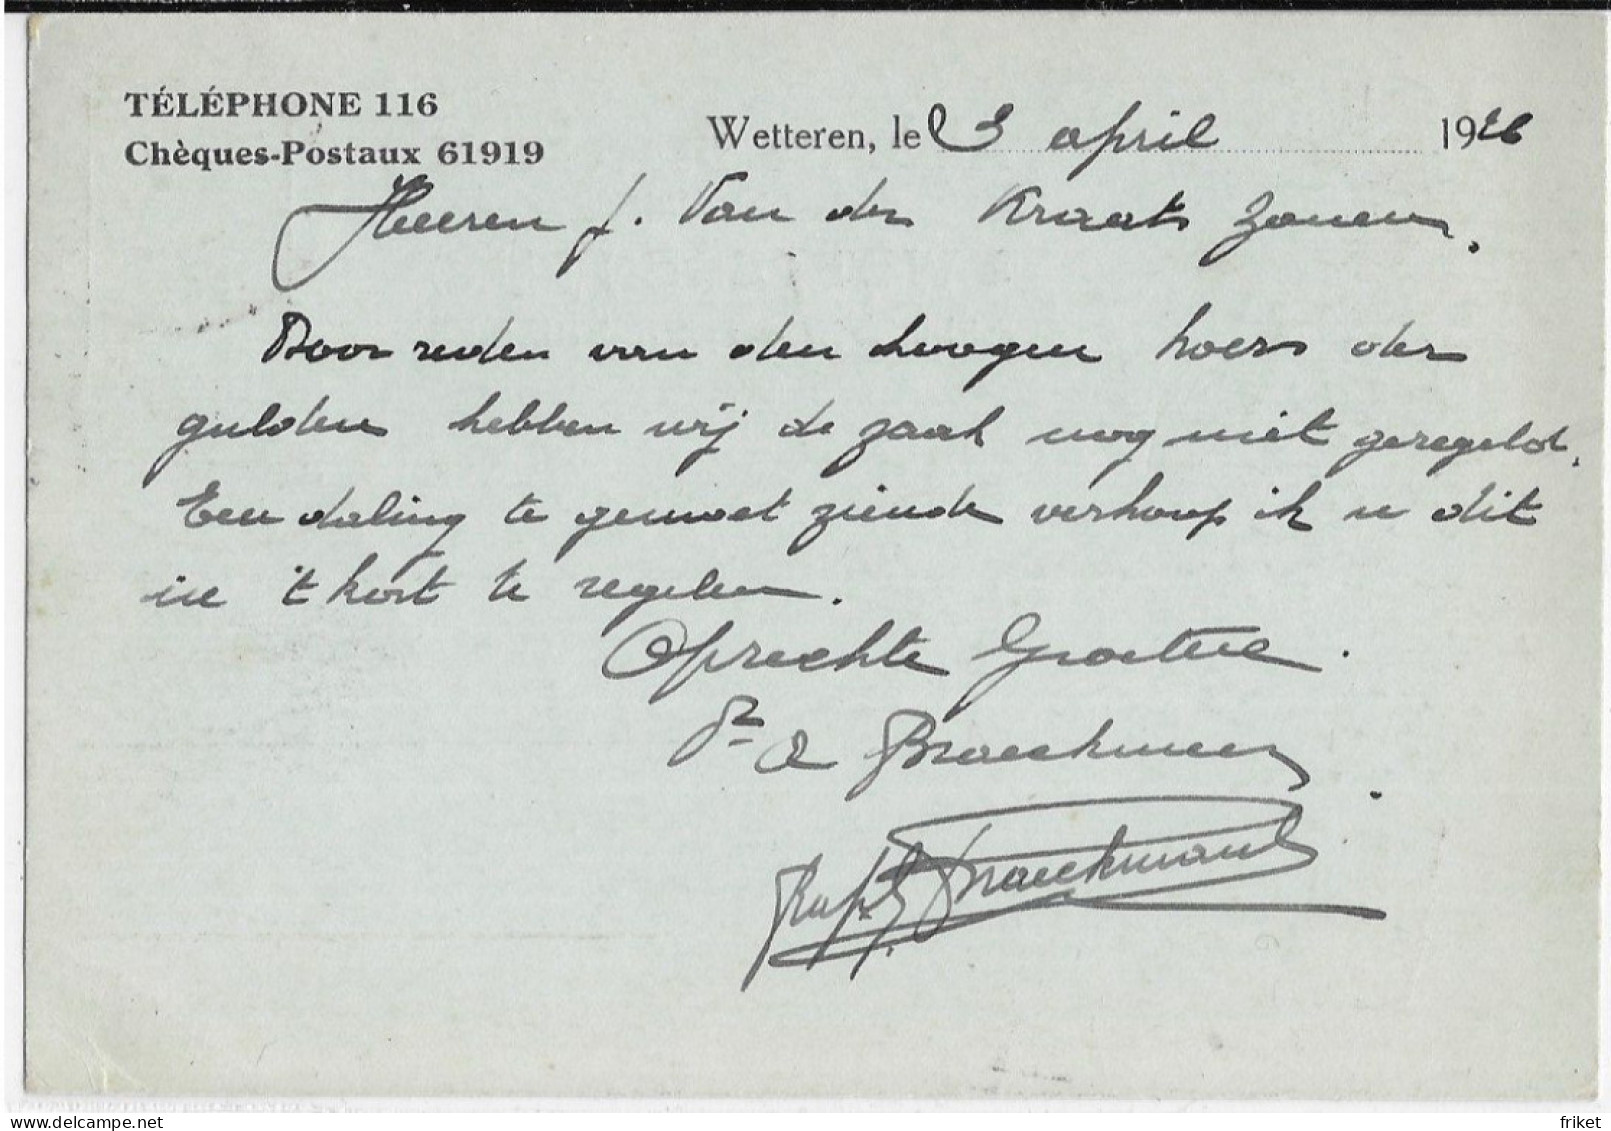 TÉLÉPHONE 116
Chèques-Postaux 61919
Wetteren, le 3 april 1926
Heeren J. Van der Kraats Zonen.
Door reden van den hoogen koers der
gulden hebben wij de zaak nog niet geregeld.
Een daling te gemoet ziende verhoop ik u dit
in 't kort te regelen.
Oprechte Groeten.
Pr A Braeckman
Braeckman
friket